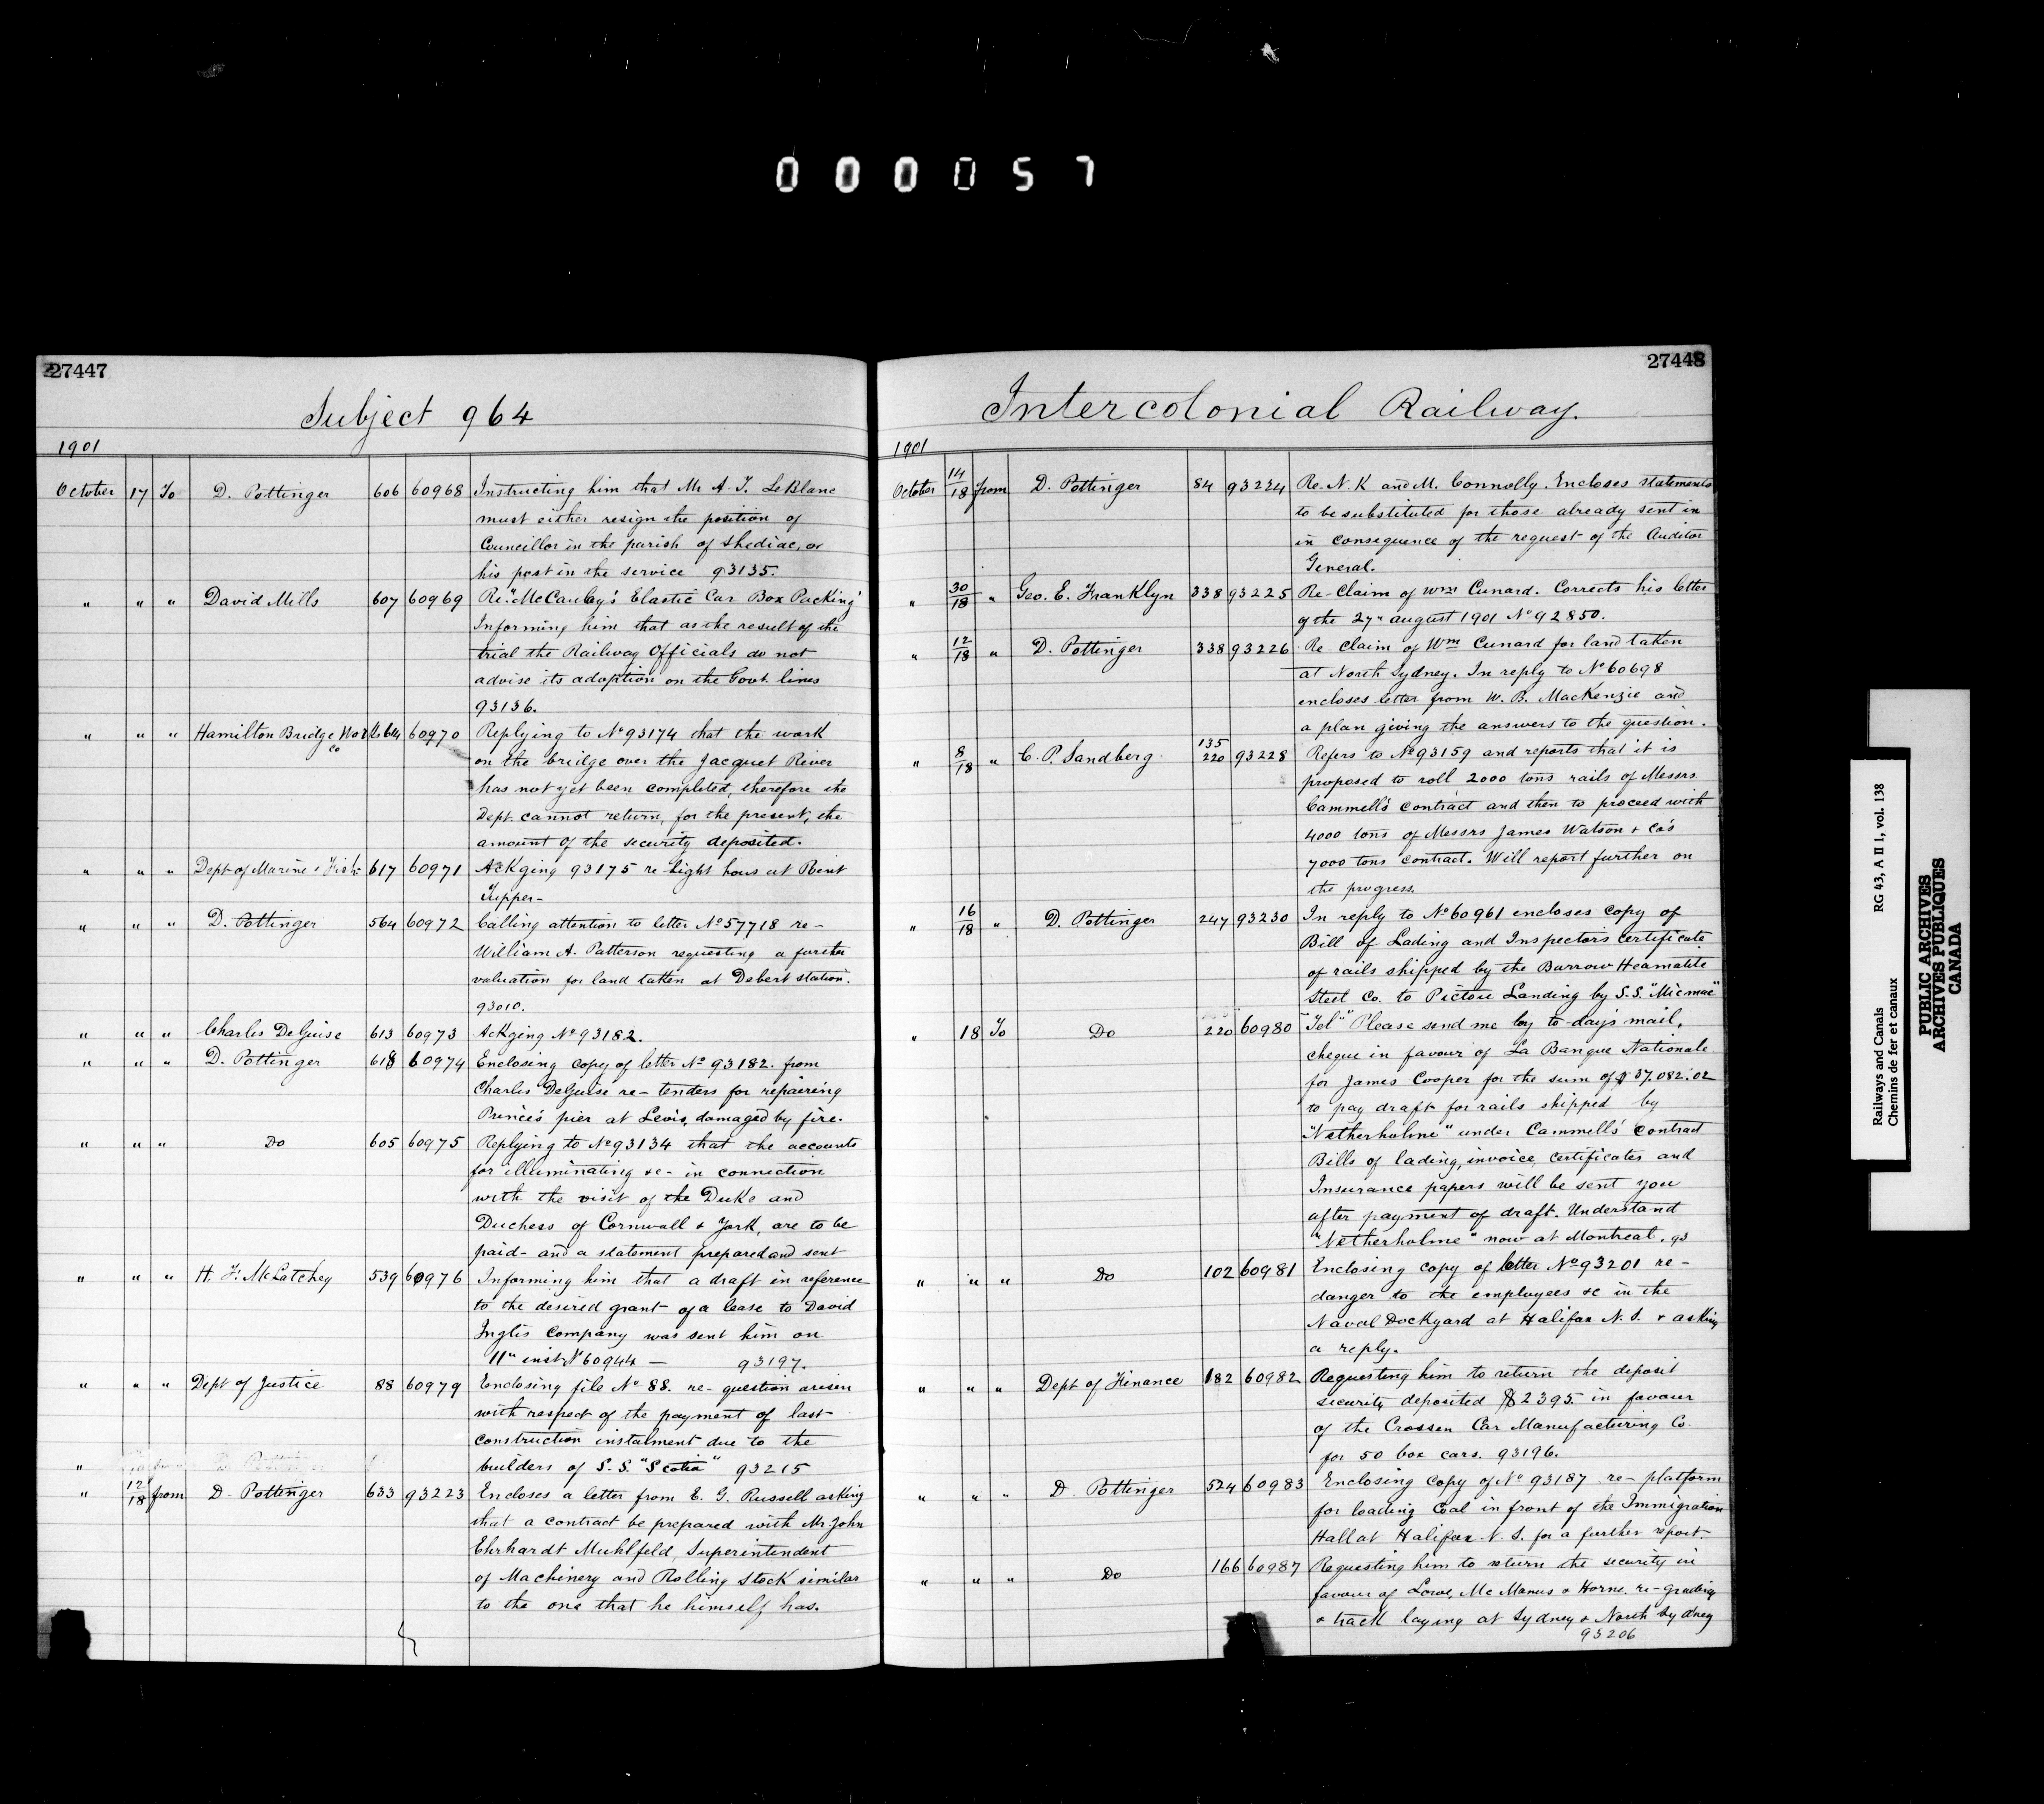 0 0 0 0 5 7
27447
Subject 964
1901
October 17 To D. Pottinger 606 60968 Instructing him that Mr A. T. LeBlanc
must either resign the position of
Councillor in the parish of Shediac, or
his post in the service 93135.
" " " David Mills 607 60969 Re. "McCauley's Elastic Car Box Packing"
Informing him that as the result of the
trial the Railway Officials do not
advise its adoption on the Govt. lines
93136.
" " " Hamilton Bridge Works Co 614 60970 Replying to No 93174 that the work
on the bridge over the Jacquet River
has not yet been completed, therefore the
Dept. cannot return, for the present, the
amount of the security deposited.
" " " Dept of Marine & Fish 617 60971 Ackging 93175 re-light hous at Point
Tupper-
" " " D. Pottinger 564 60972 Calling attention to letter No 57718 re-
William A. Patterson requesting a further
valuation for land taken at Debert station.
93010.
" " " Charles DeGuise 613 60973 Ackging No 93182.
" " " D. Pottinger 618 60974 Enclosing copy of letter No 93182. from
Charles DeGuise re- tenders for repairing
Princes pier at Levis, damaged by fire.
" " " Do 605 60975 Replying to No 93134 that the accounts
for illuminating &c- in connection
with the visit of the Duke and
Duchess of Cornwall & York, are to be
paid- and a statement prepared and sent
" " " H. F. McLatchey 539 60976 Informing him that a draft in reference
to the desired grant of a lease to David
Inglis Company was sent him on
11th inst No 60944 - 93197.
" " " Dept of Justice 88 60979 Enclosing file No 88. re- question arisen
with respect of the payment of last
construction instalment due to the
" builders of S.S. "Scotia" 93215
" 12/18 from D. Pottinger 633 93223 Encloses a letter from E. G. Russell asking
that a contract be prepared with Mr. John
Ehrhardt Muhlfeld, Superintendent
of Machinery and Rolling Stock similar
to the one that he himself has.
27448
Intercolonial Railway.
1901
October 14/18 from D. Pottinger 84 93224 Re. N. K and M. Connolly. Encloses statements
to be substituted for those already sent in
in consequence of the request of the Auditor
General.
" 30/18 " Geo. E. Franklyn 338 93225 Re-Claim of Wm Cunard. Corrects his letter
of the 27th august 1901 No 92850.
" 12/18 " D. Pottinger 338 93226 Re Claim of Wm Cunard for land taken
at North Sydney. In reply to No 60698
encloses letter from W. B. MacKenzie and
a plan giving the answers to the question.
" 8/18 " C. P. Sandberg 135 220 93228 Refers to No 93159 and reports that it is
proposed to roll 2000 tons rails of Messrs
Cammell's contract and then to proceed with
4000 tons of Messrs James Watson & Co's
7000 tons contract. Will report further on
the progress.
" 16/18 " D. Pottinger 247 93230 In reply to No 60961 encloses copy of
Bill of Lading and Inspectors certificate
of rails shipped by the Barrow Heamatite
Steel Co. to Pictou Landing by S.S. "Micmac"
" 18 To Do 220 60980 "Tel" Please send me by to-day's mail,
cheque in favour of La Banque Nationale
for James Cooper for the sum of $37.082.02
to pay draft for rails shipped by
"Netherholme" under Cammell's contract
Bills of lading, invoice, certificates and
Insurance papers will be sent you
after payment of draft. Understand
"Netherholme" now at Montreal. 93
" " " Do 102 60981 Enclosing copy of letter No 93201 re-
danger to the employees &c in the
Naval Dockyard at Halifax N.S. & asking
a reply.
" " " Dept of Finance 182 60982 Requesting him to return the deposit
security deposited $2395. in favour
of the Crossen Car Manufacturing Co.
for 50 box cars. 93196.
" " " D. Pottinger 524 60983 Enclosing copy of No 93187 re- platform
for loading Coal in front of the Immigration
Hall at Halifax N.S. for a further report.
" " " Do 166 60987 Requesting him to return the security in
favour of Lowe, McManus & Horne. re-grading
& track laying at Sydney & North Sydney
93206
Railways and Canals RG 43, A II 1, vol. 138
Chemins de fer et canaux
PUBLIC ARCHIVES
ARCHIVES PUBLIQUES
CANADA